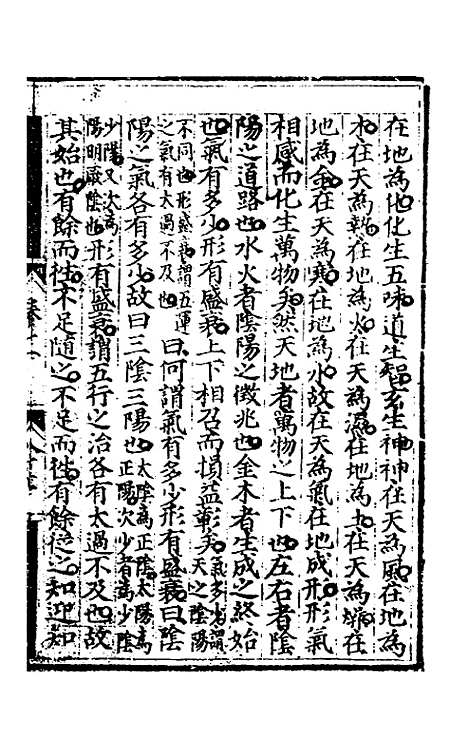 在地為化化生五味道生智玄生神神在天為風在地為
木在天為熱在地為火在天為濕在地為土在天為燥在
地為金在天為寒在地為水故在天為氣在地成形形氣
相感而化生萬物矣然天地者萬物之上下也左右者陰
陽之道路也水火者陰陽之徵兆也金木者生成之終始
也氣有多少形有盛衰上下相召而損益彰矣氣多少謂天之陰陽
不同也形盛衰謂五運之氣有太過不及也曰何謂氣有多少形有盛衰曰陰
陽之氣各有多少故曰三陰三陽也太陰為正陰太陽為正陽次少者為少陰
少陽又次為陽明厥陰也形有盛衰謂五行之治各有太過不及也故
其始也有餘而往不足隨之不足而往有餘從之知迎知